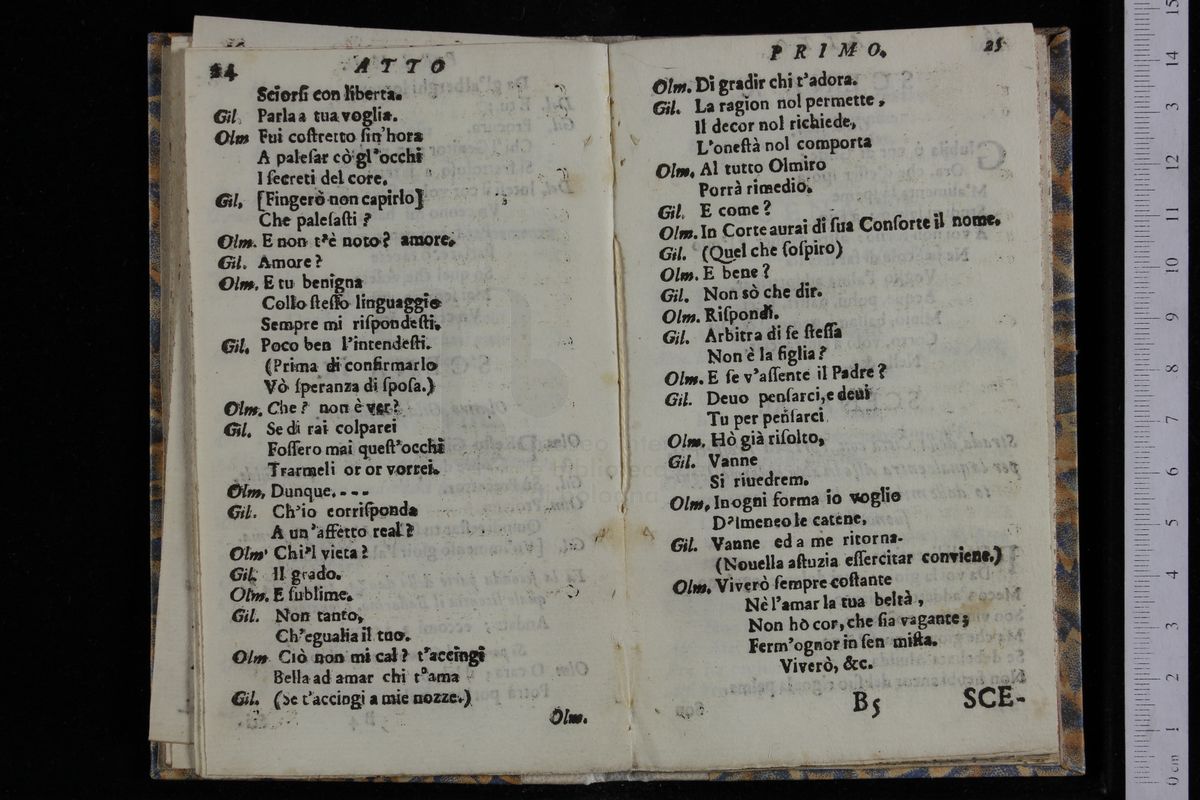 24 ATTO
Sciorſi con liberta.
Gil. Parla a tua voglia.
Olm Fui coſtretto ſin'hora
A paleſar cò gl'occhi
I ſecreti del core.
Gil. [Fingerò non capirlo]
Che paleſaſti ?
Olm. E non t'è noto? amore.
Gil. Amore?
Olm. E tu benigna
Collo ſteſſo linguaggio
Sempre mi riſpondeſti.
Gil. Poco ben l'intendeſti.
(Prima di confirmarlo
Vò ſperanza di ſpoſa.)
Olm. Che? non è ver?
Gil. Se di rai colparei
Foſſero mai queſt'occhi
Trarmeli or or vorrei.
Olm. Dunque. - - -
Gil. Ch'io corriſponda
A un'affetto real?
Olm' Chi'l vieta?
Gil. Il grado.
Olm. E ſublime.
Gil. Non tanto,
Ch'egualia il tuo.
Olm Ciò non mi cal? t'accingi
Bella ad amar chi t'ama
Gil. (Se t'accingi a mie nozze.)
Olm.
PRIMO. 25
Olm. Di gradir chi t'adora.
Gil. La ragion nol permette,
Il decor nol richiede,
L'oneſtà nol comporta
Olm. Al tutto Olmiro
Porrà rimedio.
Gil. E come?
Olm. In Corte aurai di ſua Conſorte il nome.
Gil. (Quel che ſoſpiro)
Olm. E bene?
Gil. Non sò che dir.
Olm. Riſpondi.
Gil. Arbitra di ſe ſteſſa
Non è la figlia?
Olm. E ſe v'aſſente il Padre?
Gil. Deuo penſarci, e deui
Tu per penſarci
Olm. Hò già riſolto,
Gil. Vanne
Si riuedrem.
Olm. In ogni forma io voglio
D'Imeneo le catene,
Gil. Vanne ed a me ritorna.
(Nouella aſtuzia eſſercitar conviene.)
Olm. Viverò ſempre coſtante
Nè l'amar la tua beltà,
Non hò cor, che ſia vagante;
Ferm'ognor in ſen miſta.
Viverò, &c.
B5 SCE-